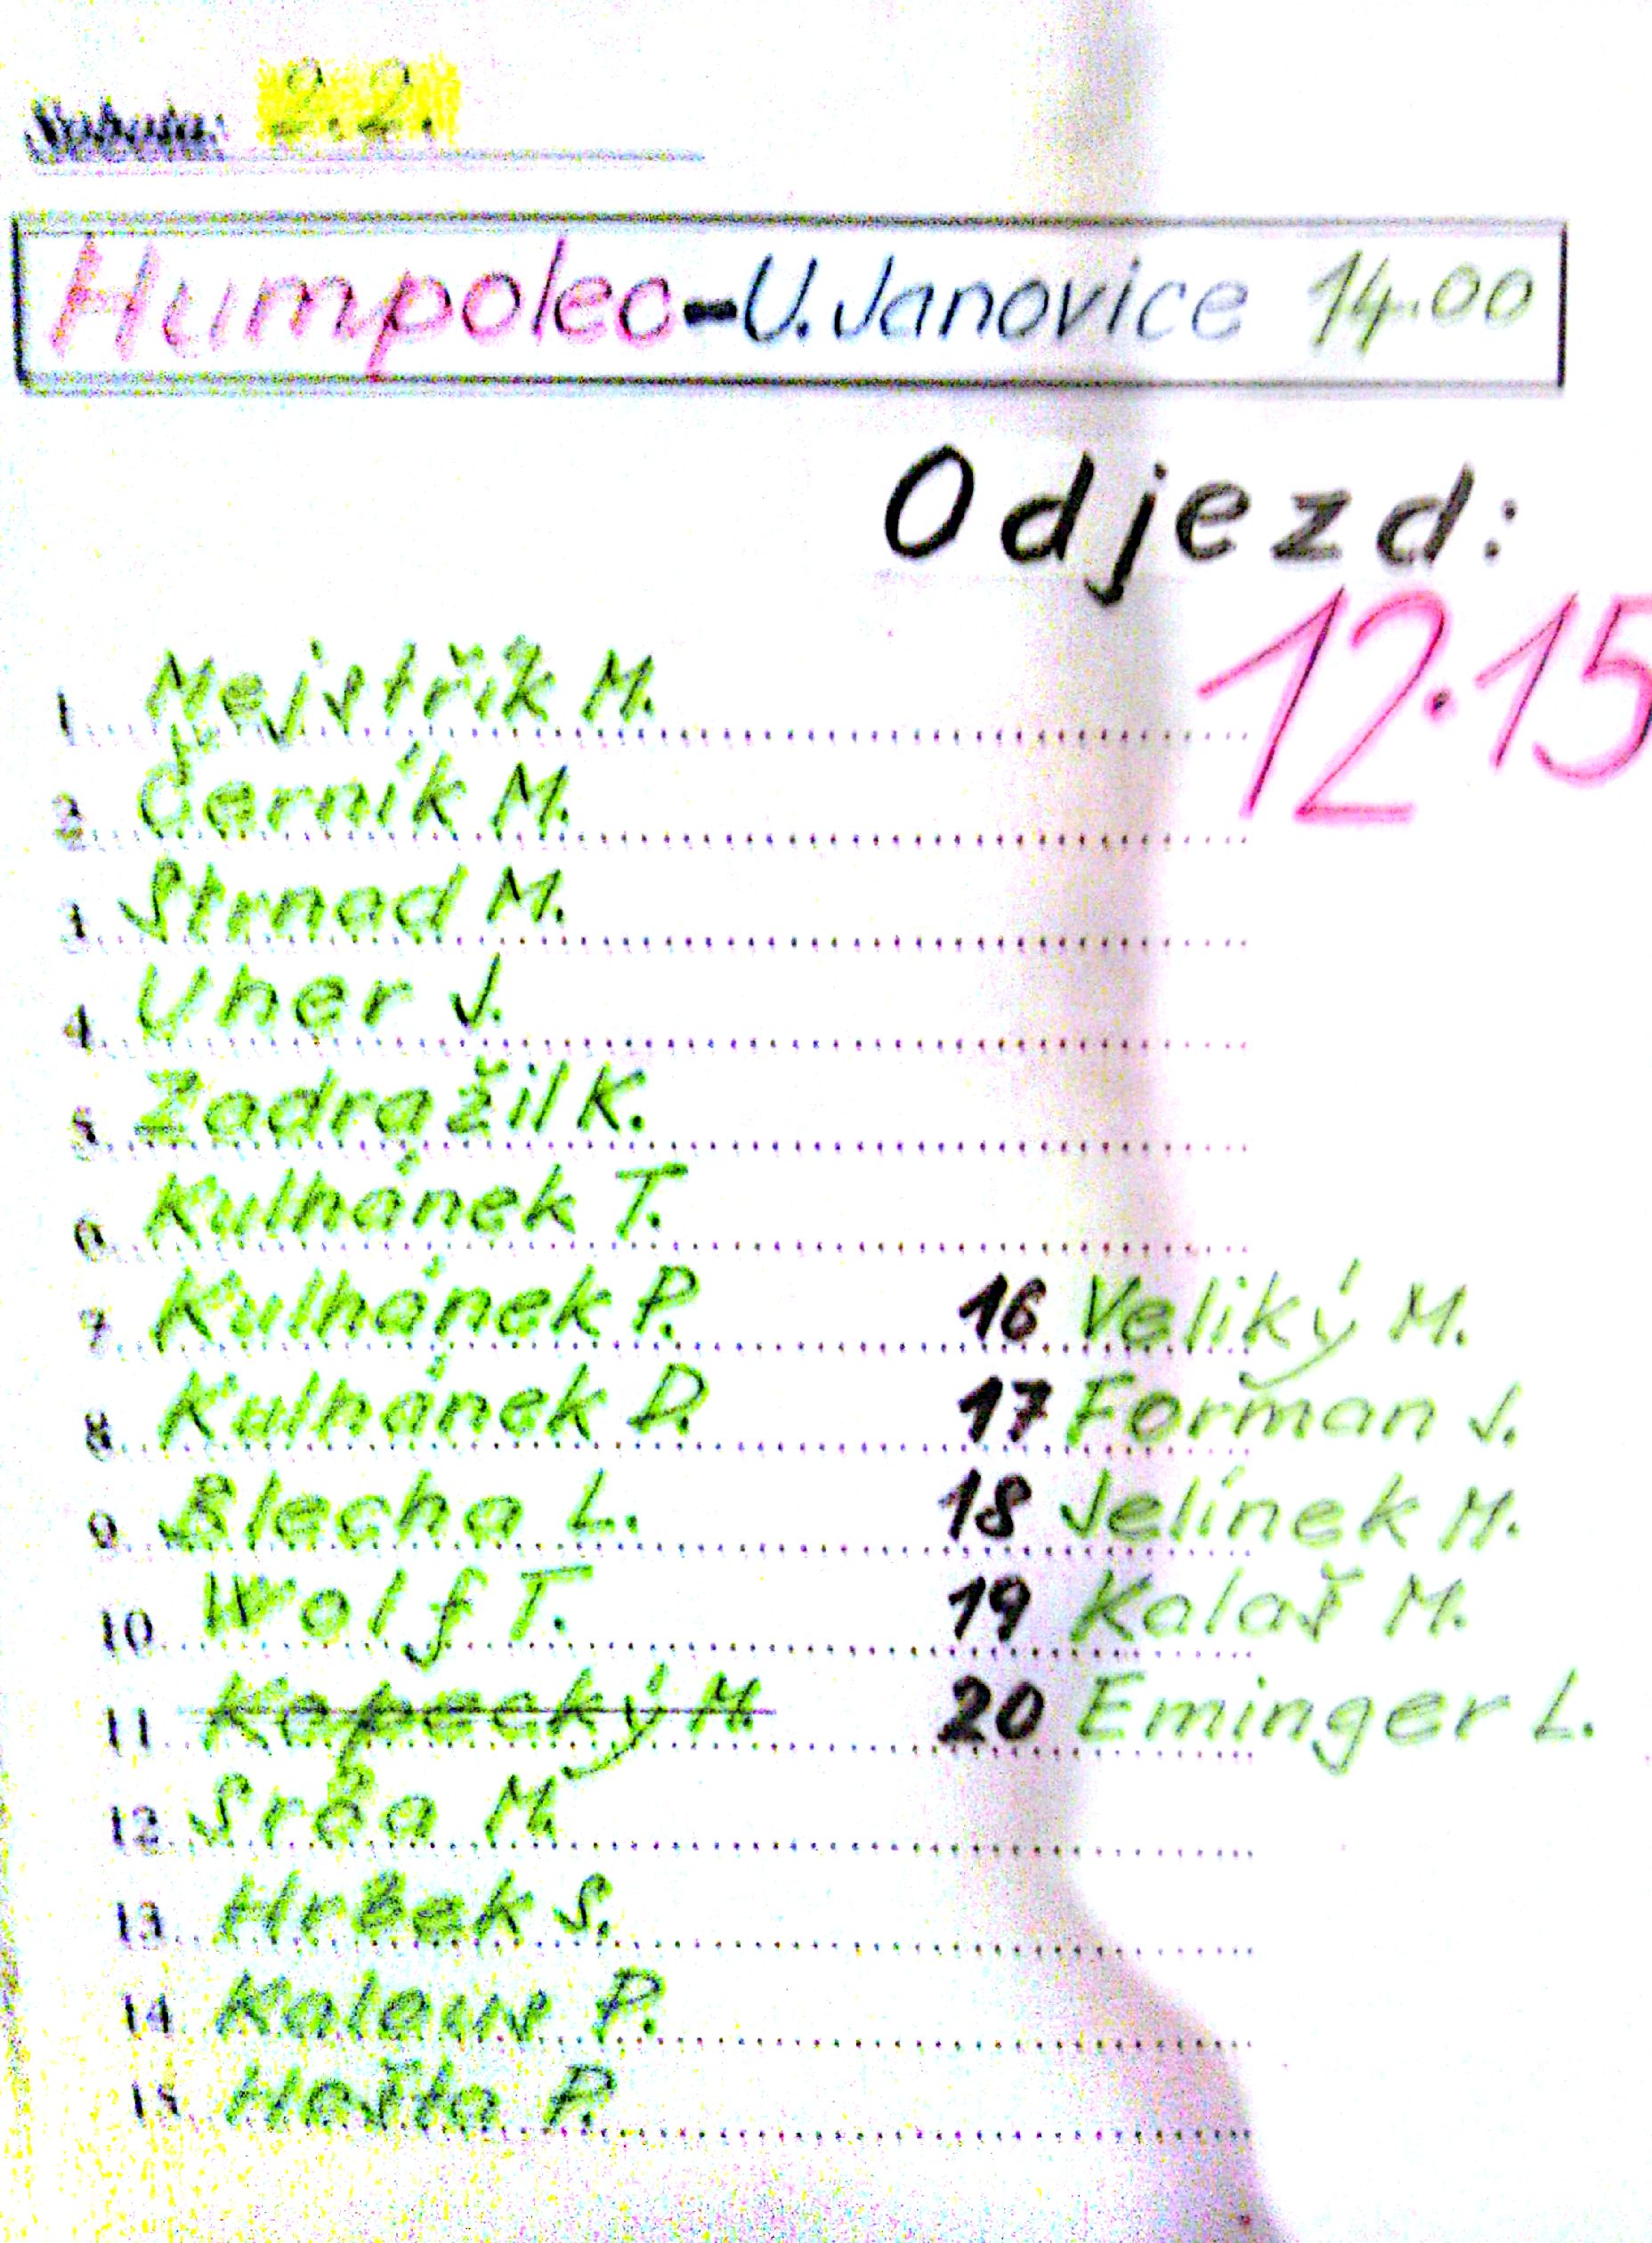 Sobota: 2.2.
Humpolec-U.Janovice 14.00
Odjezd:
12.15
1 Nejstřík M.
2 Černík M.
3 Strnad M.
4 Uher J.
5 Zadražil K.
6 Kulhánek T.
7 Kulhánek P.
8 Kulhánek D.
9 Blecha L.
10 Wolf T.
11 Kopecký M.
12 Srča M.
13 Hrbek S.
14 Kalaus P.
15 Hašta P.
16 Veliký M.
17 Forman J.
18 Jelínek M.
19 Kalaš M.
20 Eminger L.